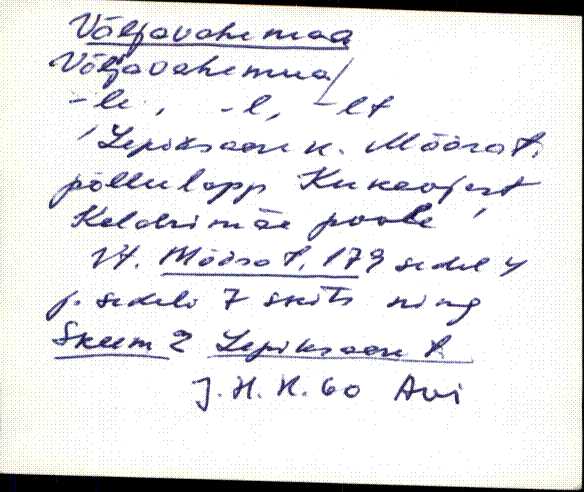 Väljavahemaa
Väljavahemaa/
-le, -l, -lt
Lepiksaare k. Määrat.
põllulapp Kukeojast
Keldrimäe poole
Vt. Määrat. 179 sedel 4
j. sedeli 7 skits ning
Skeem 2 Lepiksaare t.
J. H. K. 60 Avi